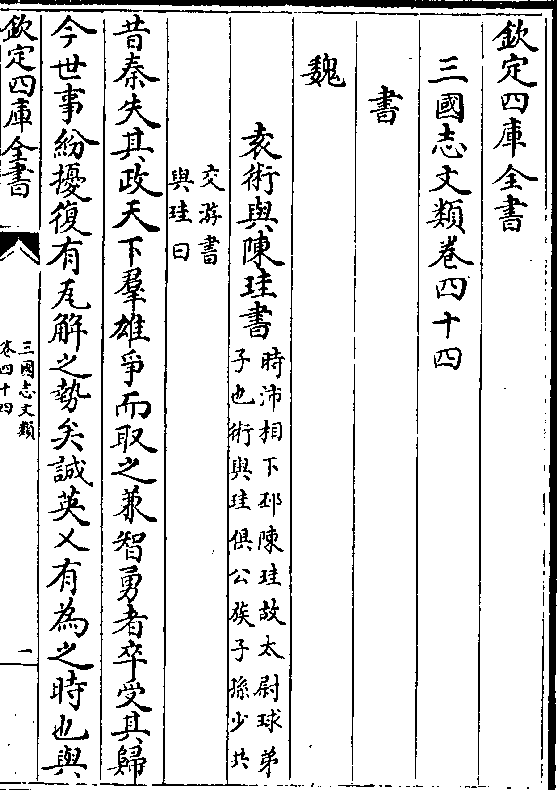 欽定四庫全書
三國志文類卷四十四
書
魏
袁術與陳珪書
時沛相下邳陳珪故太尉球弟
子也術與珪俱公族子孫少共
交游書
與珪曰
昔秦失其政天下羣雄爭而取之兼智勇者卒受其歸
今世事紛擾復有瓦解之勢矣誠英乂有為之時也與
欽定四庫全書
三國志文類
卷四十四
一